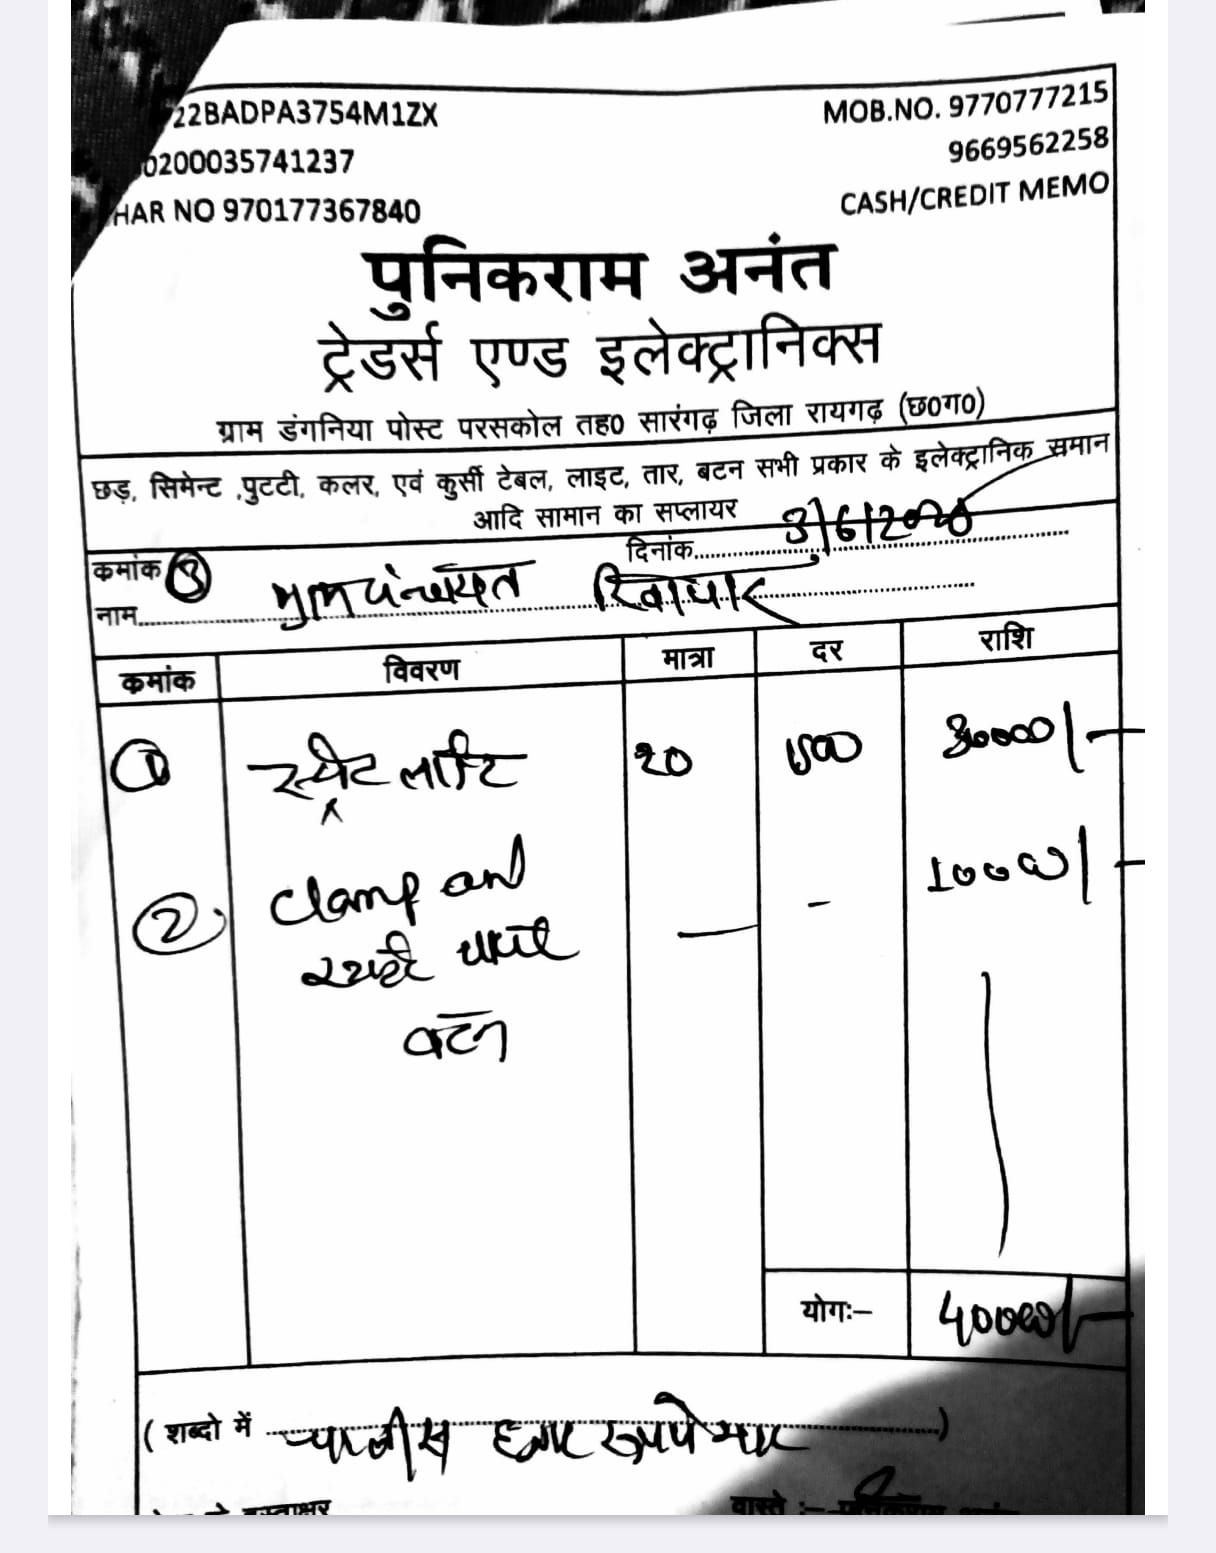 22BADPA3754M1ZX
MOB.NO. 9770777215
0200035741237
9669562258
HAR NO 970177367840
CASH/CREDIT MEMO
पुनिकराम अनंत
ट्रेडर्स एण्ड इलेक्ट्रानिक्स
ग्राम डंगनिया पोस्ट परसकोल तह0 सारंगढ़ जिला रायगढ़ (छ0ग0)
छड़, सिमेन्ट ,पुटटी, कलर, एवं कुर्सी टेबल, लाइट, तार, बटन सभी प्रकार के इलेक्ट्रानिक समान
आदि सामान का सप्लायर
कमांक 3 दिनांक 3/6/2020
नाम
कमांक विवरण मात्रा दर राशि
1 स्ट्रीट लाईट 20 1500 30000/-
2 Clamp and - - 10000/-
बटन
योगः- 40000/-
( शब्दो में चालीस हजार रूपये मात्र )
हस्ताक्षर वास्ते :- पुनिकराम अनंत